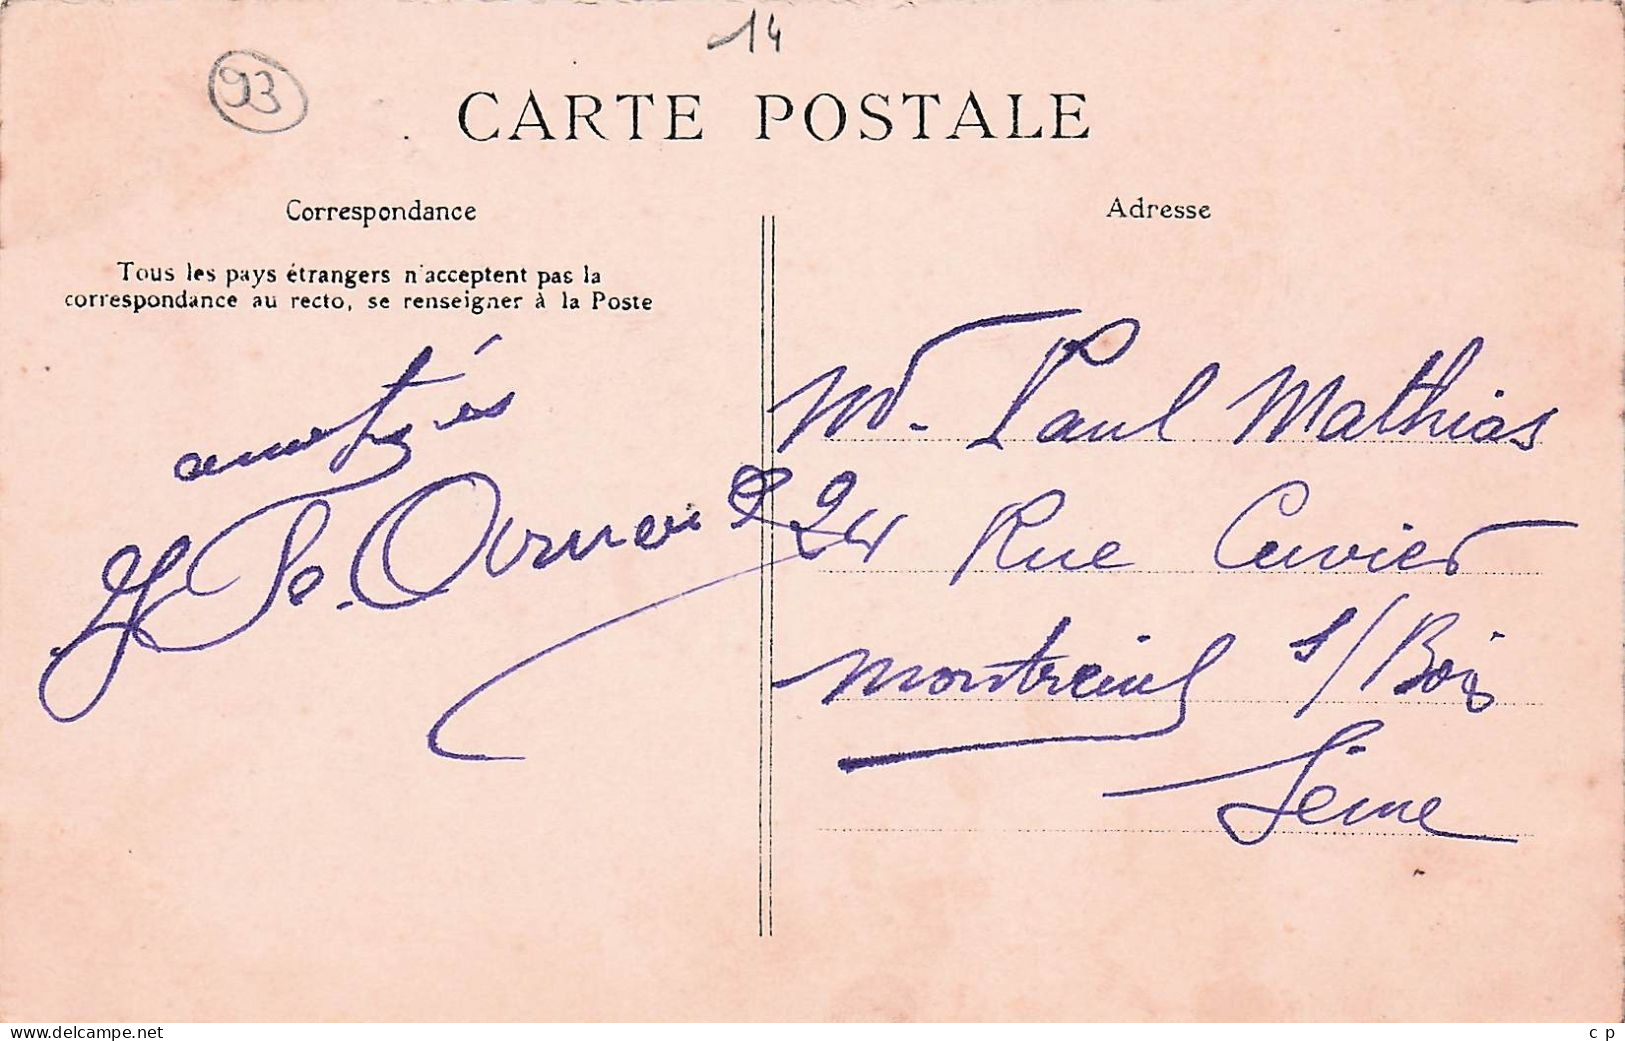 14
93
CARTE POSTALE
Correspondance
Adresse
Tous les pays étrangers n'acceptent pas la
correspondance au recto, se renseigner à la Poste
amitiés
Mr. Paul Mathias
24 Rue Cuvier
Montreuil s/Bois
Seine
www.delcampe.net
c p